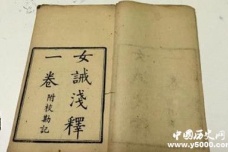 女誡淺釋
一卷 附校勘記
中国历史网
www.y5000.com